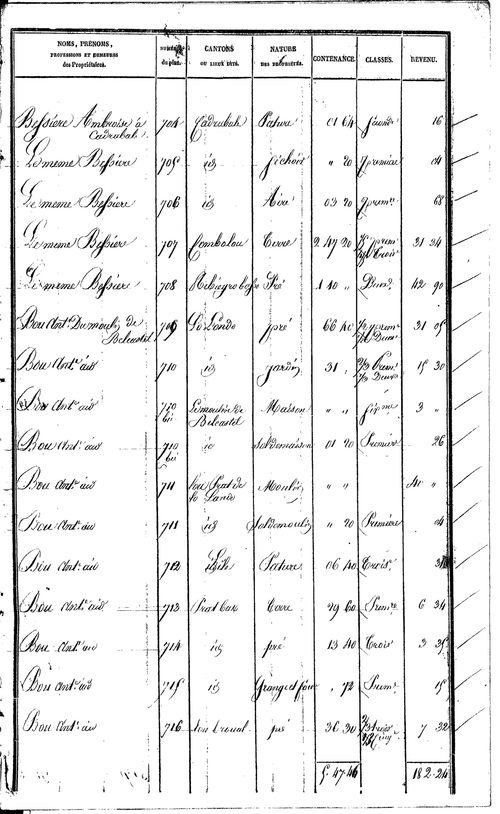 NOMS, PRÉNOMS,
PROFESSIONS ET DEMEURES
des Propriétaires.
NUMÉROS
du plan.
CANTONS
OU LIEUX DITS.
NATURE
DES PROPRIÉTÉS.
CONTENANCE.
CLASSES.
REVENU.
Bessiere Ambroise à Cadrubah 704 Cadrubah Pature 01 64 16
Le meme Bessiere 705 id " 20 premiere 04
Le meme Bessiere 706 id Aire 03 20 prem.re 68
Le meme Bessiere 707 Combalou Terre 2 47 20 31 34
Le meme Bessiere 708 Pré 1 10 " Deux.e 42 90
Bou Ant.e Dumoulin de Belcastel 709 La Lande pré 66 40 31 05
Bou Ant.e aid 710 id jardin 31 " 15 30
Bou Ant.e aid 710 bis Lemoulin de Belcastel Maison " " 3 "
Bou Ant.e aid 710 bis id Soldemaison 01 20 Premiere 26
Bou Ant.e aid 711 Lou Prat de la Lande Moulin " " 40 "
Bou Ant.e aid 711 id Soldemoulin " 20 Premiere 04
Bou Ant.e aid 712 Pature 06 40 Trois.e
Bou Ant.e aid 713 Prat bar Terre 29 60 Prem.re 6 34
Bou Ant.e aid 714 id pré 13 40 Trois 3 35
Bou Ant.e aid 715 id Grange et four " 72 Prem.re 15
Bou Ant.e aid 716 pré 36 30 7 32
5. 47. 46 182. 24